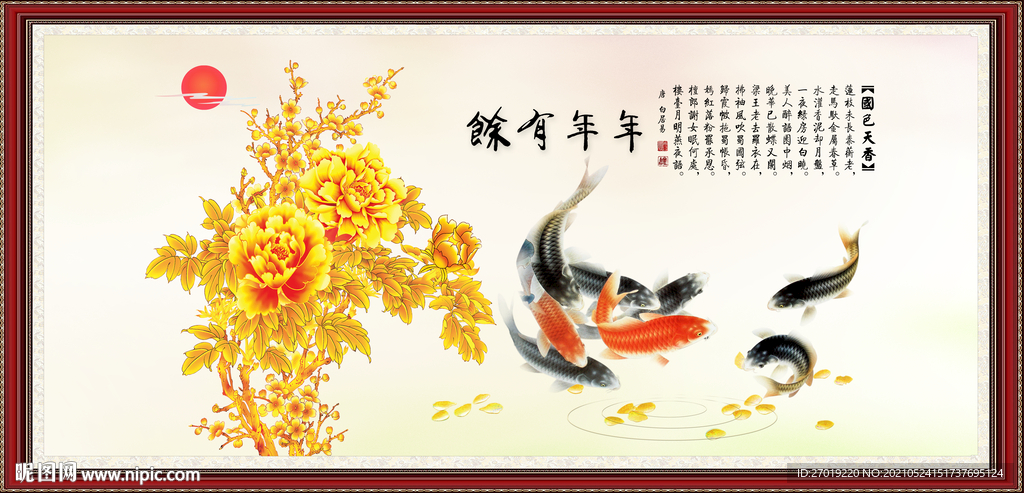 【國色天香】
蓮枝未長秦蘅老，
走馬馱金屬春草。
水灌香泥却月盤，
一夜綠房迎白曉。
美人醉語園中烟，
晚華已散蝶又闌。
梁王老去羅衣在，
拂袖風吹蜀國弦。
歸霞帔拖蜀帳昏，
嫣紅落粉罷承恩。
檀郎謝女眠何處，
樓臺月明燕夜語。
唐 白居易
年年有餘
昵图网 www.nipic.com
ID:27019220 NO:20210524151737695124